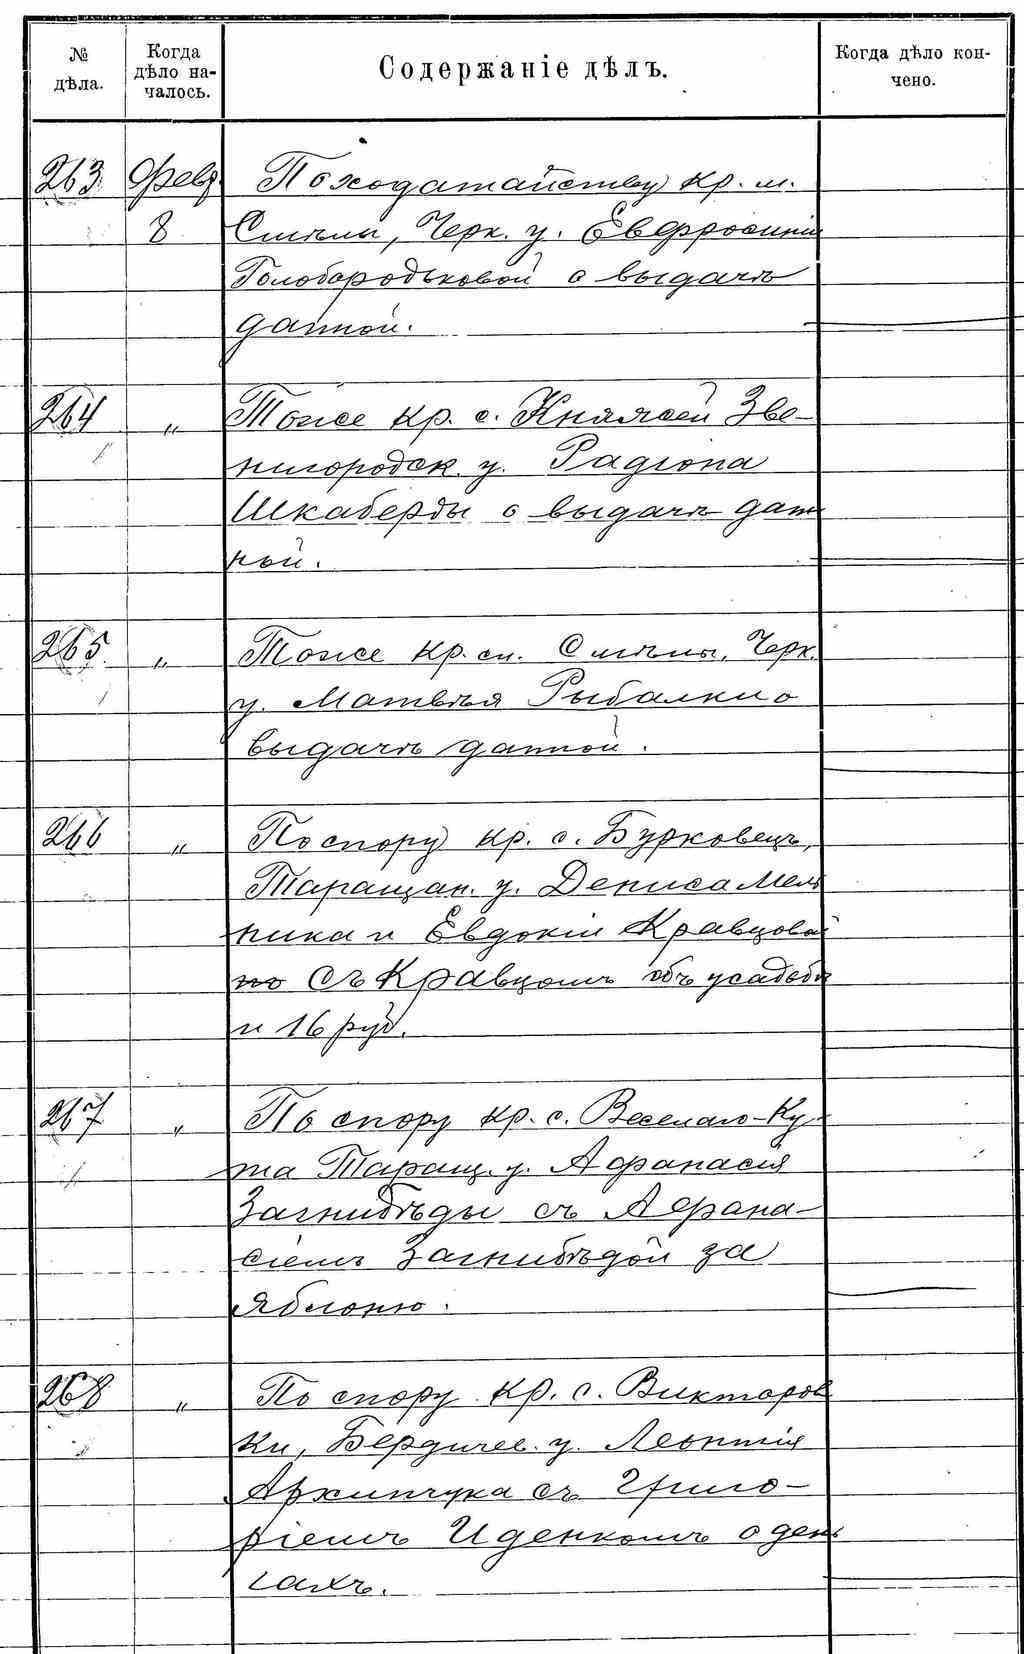 № дѣла. Когда дѣло началось. Содержаніе дѣлъ. Когда дѣло кончено.
263 Февр. По ходатайству кр. м.
8 Смѣлы, Черк. у. Евфросиніи
Голобородьковой о выдачѣ
данной.
264 „ Тоже кр. с. Княжей Зве-
нигородск. у. Радіона
Шкаберды о выдачѣ дан
ной.
265 „ Тоже кр. м. Смѣлы, Черк.
у. Матвѣя Рыбалки о
выдачѣ данной.
266 „ По спору кр. с. Бурковецъ,
Таращан. у. Дениса Мель
ника и Евдокіи Кравцовой
по съ Кравцомъ объ усадьбѣ
и 16 руб.
267 „ По спору кр. с. Веселаго-Ку-
та Таращ. у. Афанасія
Загнибѣды съ Афана-
сіемъ Загнибѣдой за
яблоню.
268 „ По спору кр. с. Викторов
ки, Бердичев. у. Леонтія
Архипчука съ Григо-
ріемъ Иденкомъ о день
гахъ.